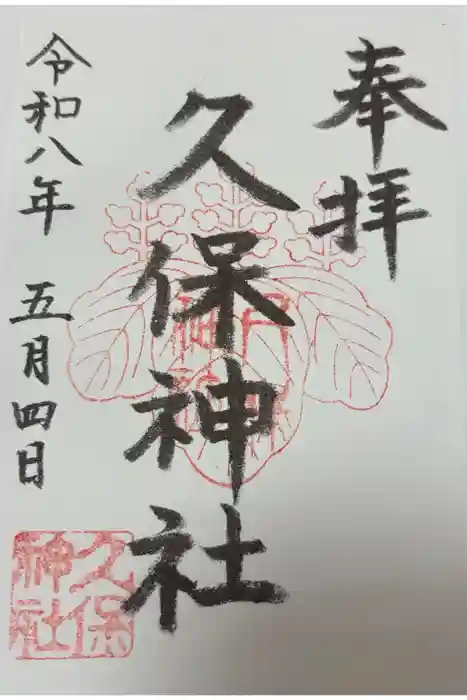 奉拝
久保神社
令和八年 五月四日
久保
神社